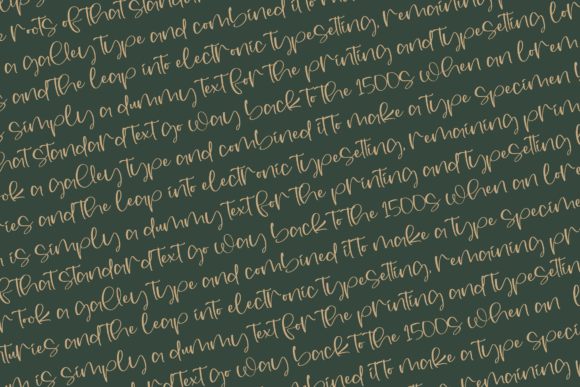 e roots of that standard
a galley type and combined it to make a
s and the leap into electronic typesetting, remaining
s simply a dummy text for the printing and typesetting lor
hat standard text go way back to the 1500s when an lorem
ook a galley type and combined it to make a type specimen
ries and the leap into electronic typesetting, remaining prin
m is simply a dummy text for the printing and typesetting
f that standard text go way back to the 1500s when an lore
r took a galley type and combined it to make a type specime
turies and the leap into electronic typesetting, remaining pr
m is simply a dummy text for the printing and typesettin
text go way back to the 1500s when an
combined it to make a type speci